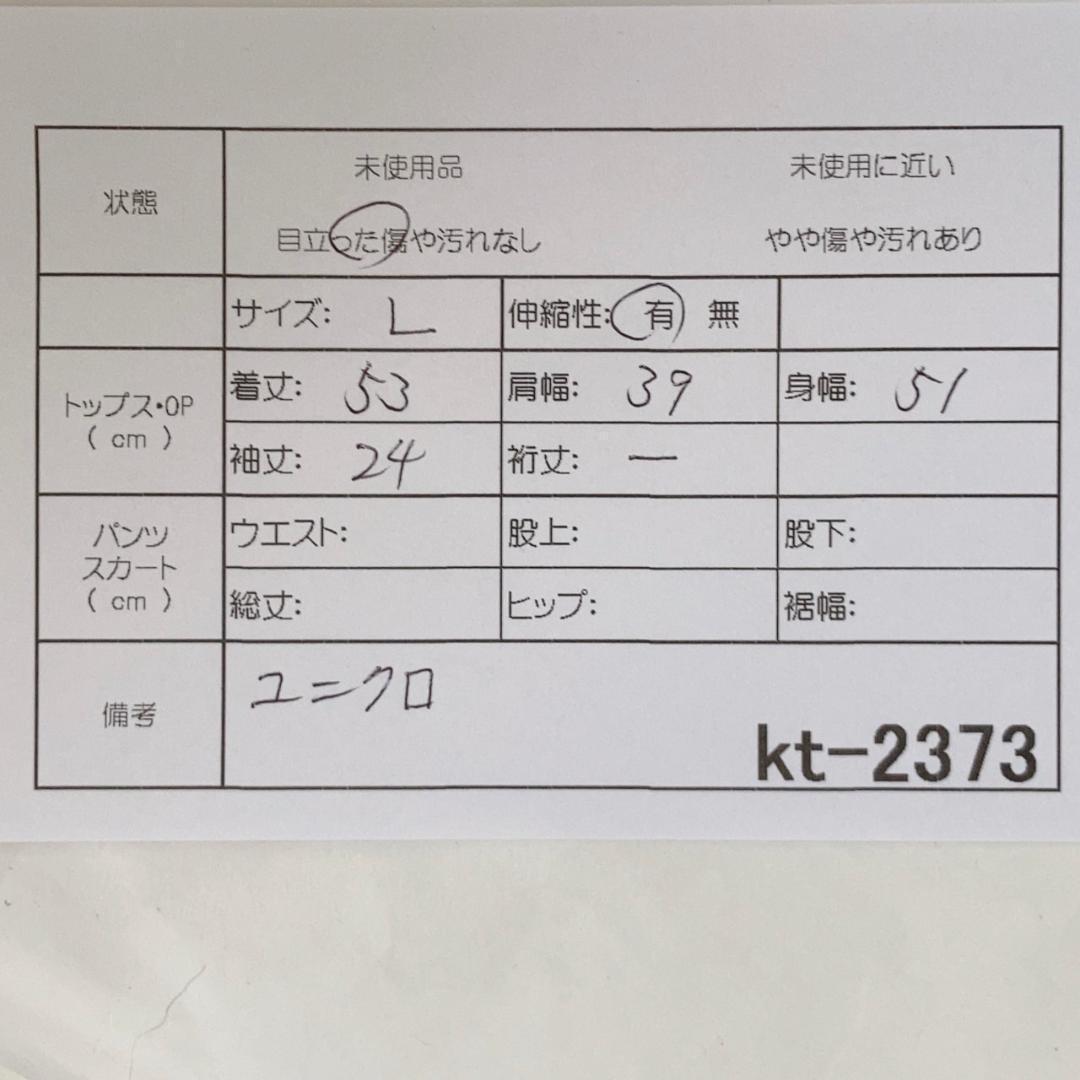 状態
未使用品 未使用に近い
目立った傷や汚れなし やや傷や汚れあり
サイズ: L 伸縮性: 有 無
トップス・OP
( cm )
着丈: 53 肩幅: 39 身幅: 51
袖丈: 24 裄丈: ー
パンツ
スカート
( cm )
ウエスト: 股上: 股下:
総丈: ヒップ: 裾幅:
備考
ユニクロ
kt-2373